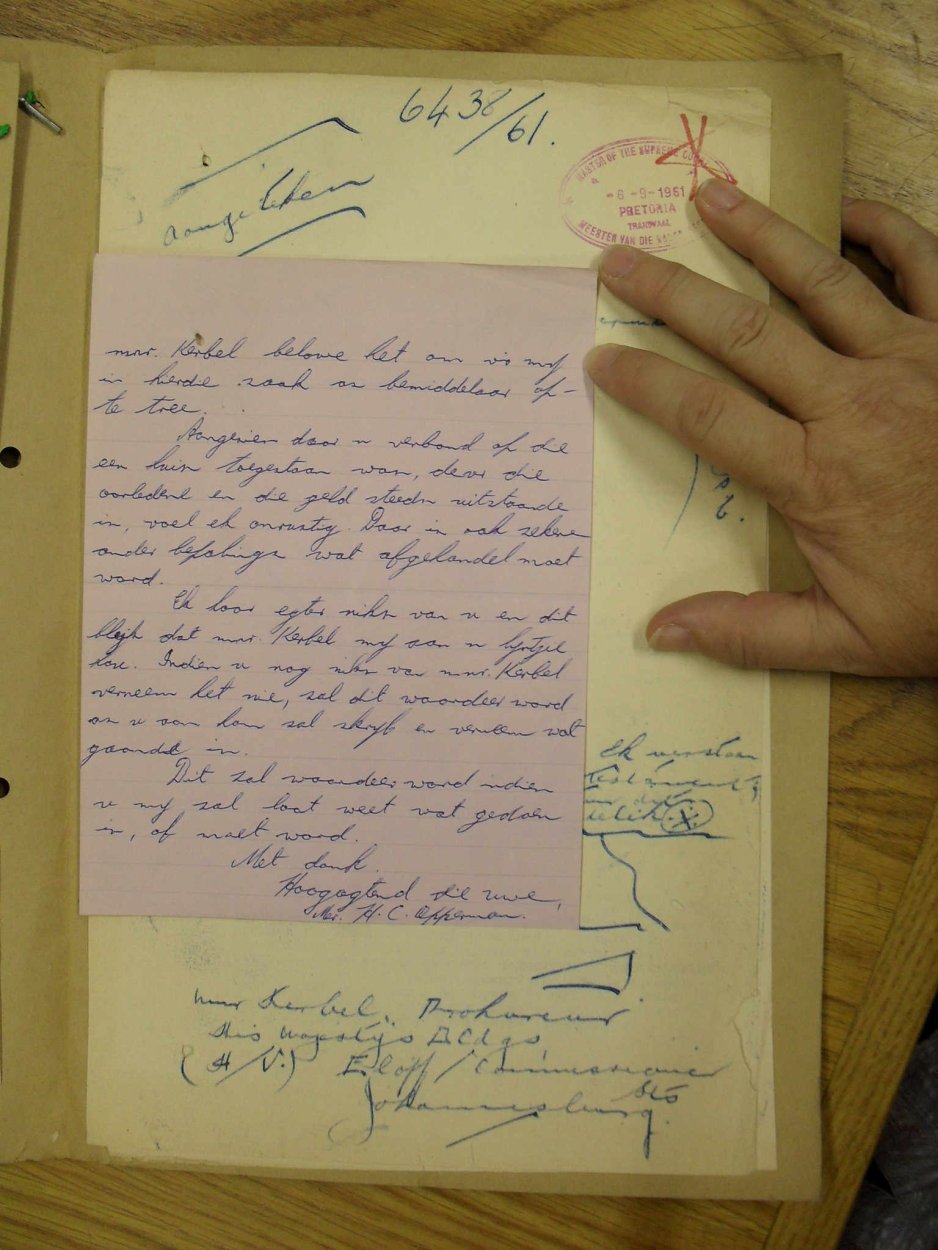 6438/61.
MASTER OF THE SUPREME
-6-9-1961
PRETORIA
TRANSVAAL
MEESTER VAN DIE
aangeteken
mnr. Kerbel belowe het om vis my
in hierdie saak as bemiddelaar op-
te tree.
Aangesien daar 'n verband op die
een huis toegestaan was, deur die
oorledene en die geld steeds uitstaande
is, voel ek onrustig. Daar is ook sekere
ander bepalings wat afgehandel moet
word.
Ek hoor egter niks van u en dit
blyk dat mnr. Kerbel my aan 'n lyntjie
hou. Indien u nog niks van mnr. Kerbel
verneem het nie, sal dit waardeer word
as u aan hom sal skryf en verneem wat
gaande is.
Dit sal waardeer word indien
u my sal laat weet wat gedoen
is, of moet word.
Met dank.
Hoogagtend die uwe,
Mev. H. C. Opperman.
Ek verstaan
mnr Kerbel, Prokureur
His Majestys Bldgs,
(H/V.) Eloff / Commissioner
Sts
Johannesburg.